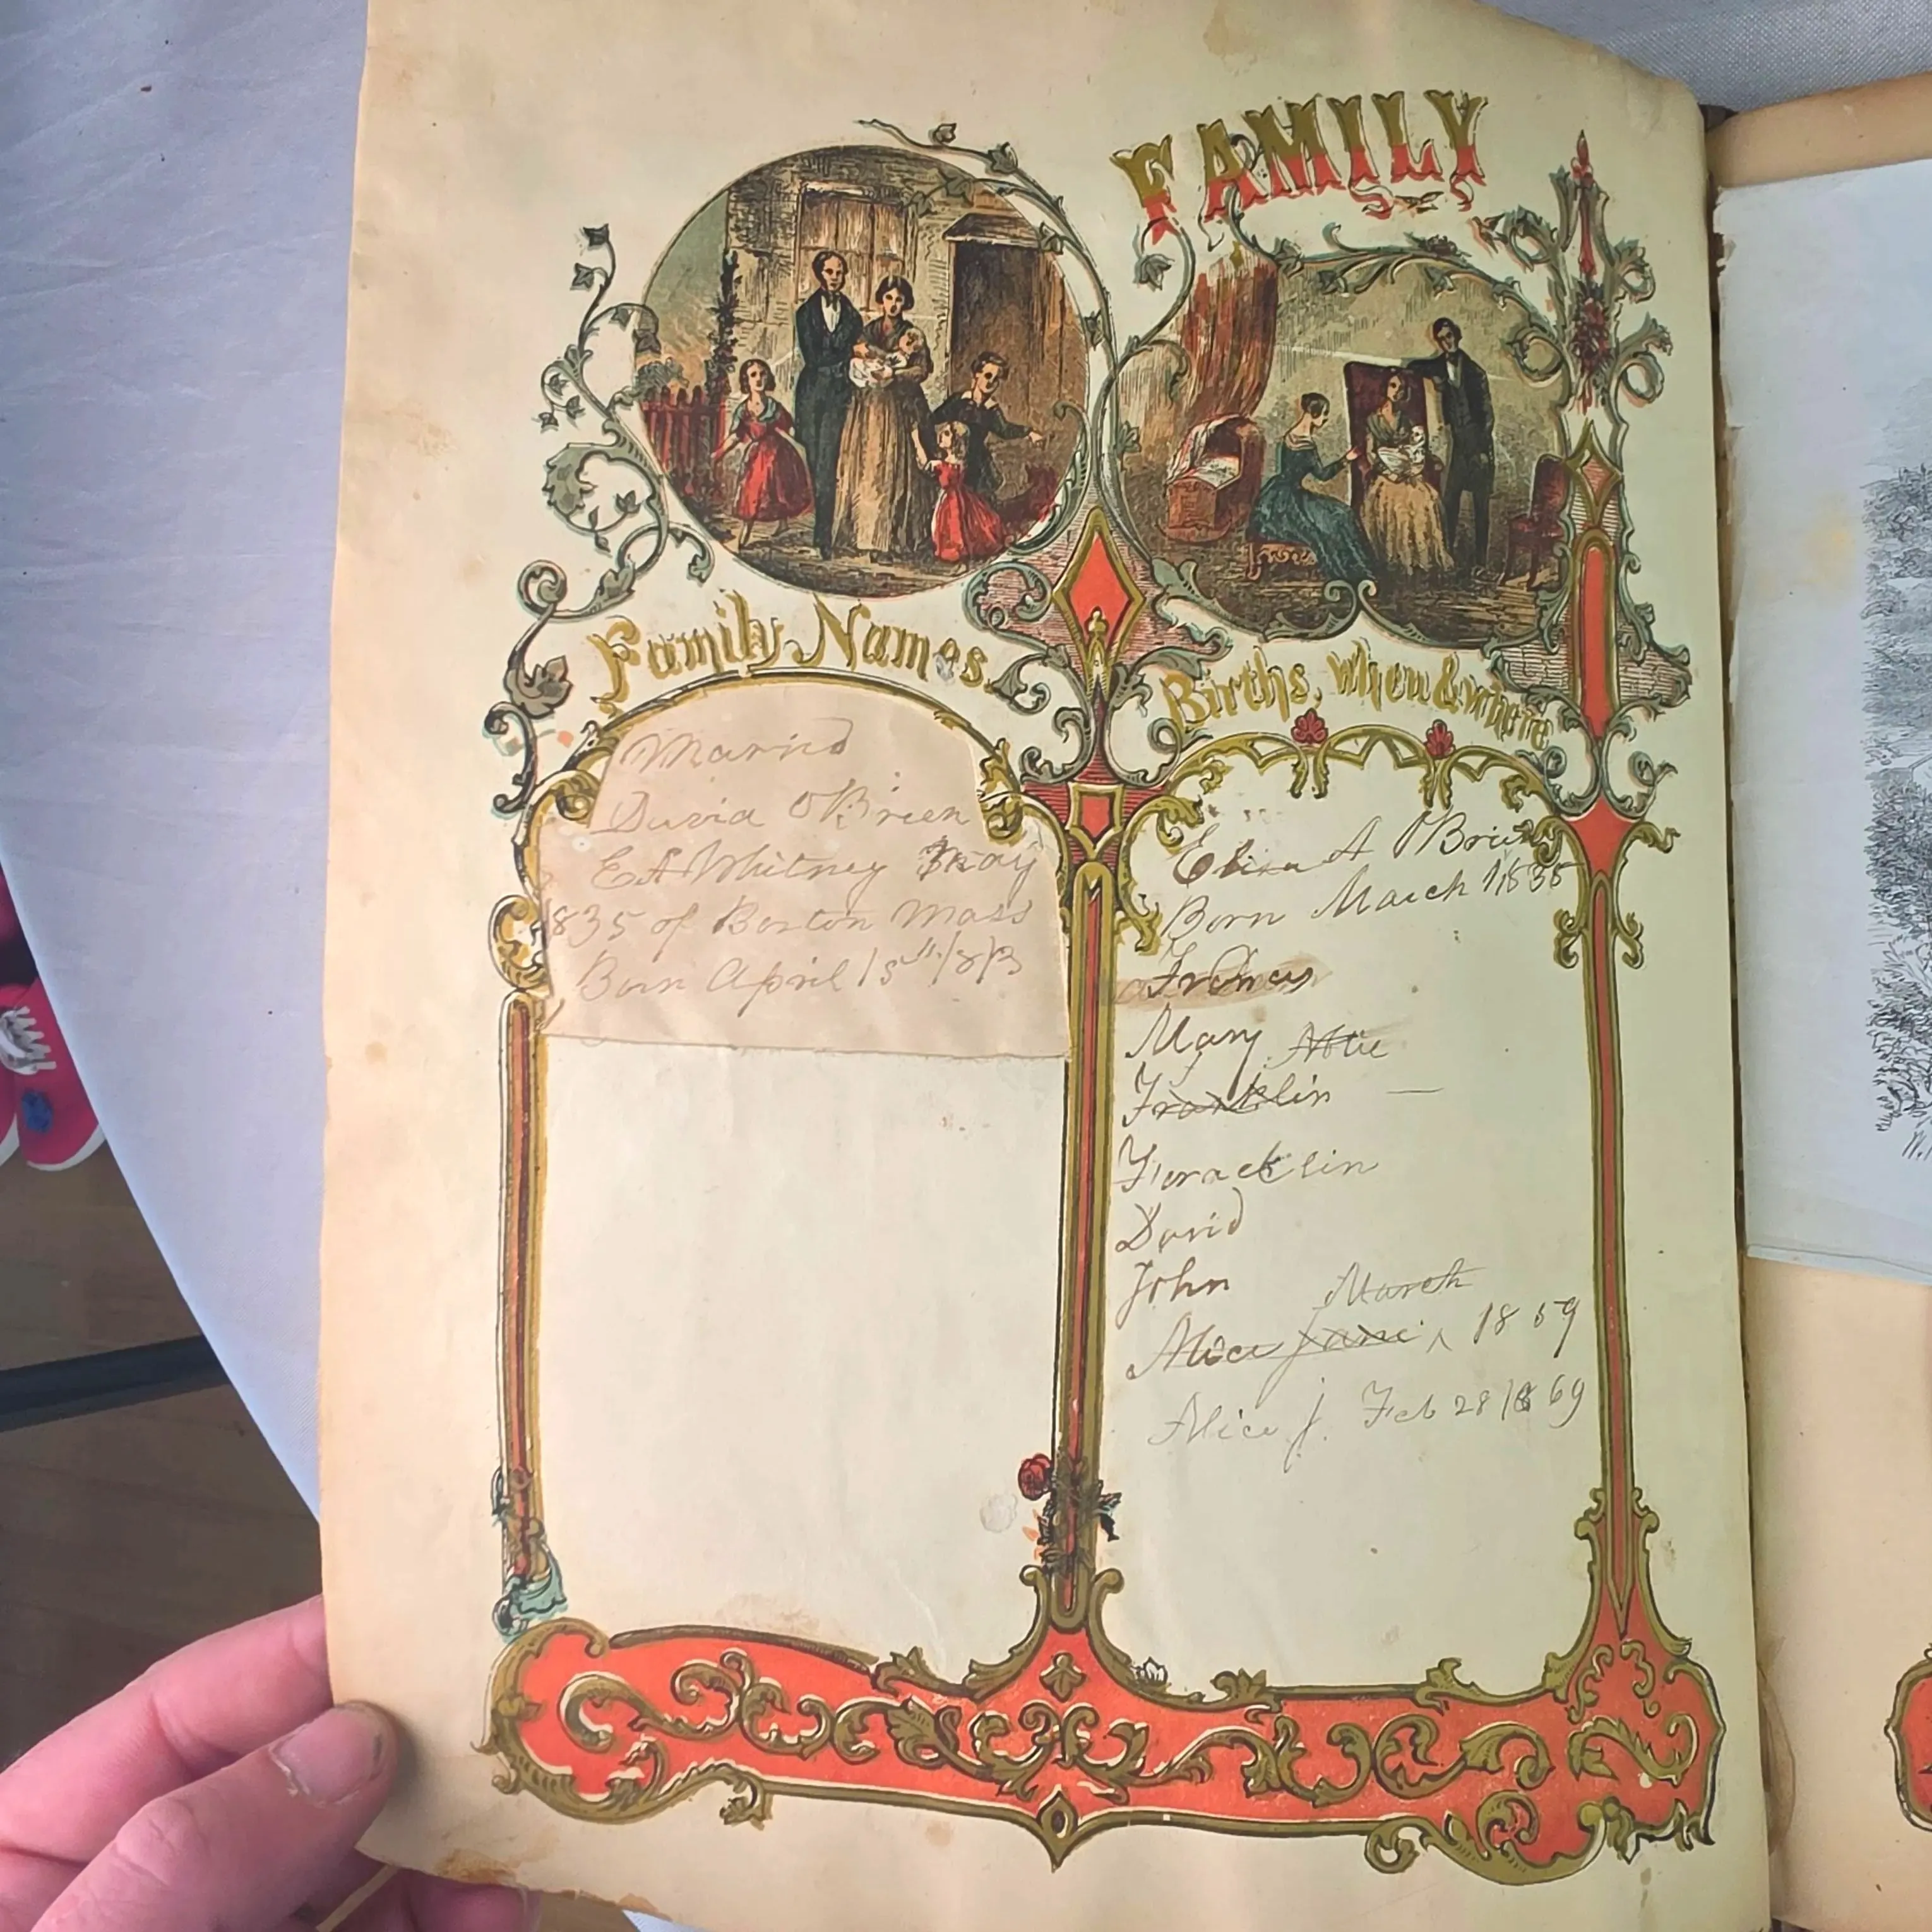 FAMILY
Family Names.
Births, When & Where
Married
David O'Brien
E A Whitney May
1835 of Boston Mass
Born April 15th 1813
Eliza A O'Brien
Born March 1, 1838
Frances
Mary
Franklin —
Francklin
David
John
March
Alice Jane ^ 1859
Alice J. Feb 28 1869